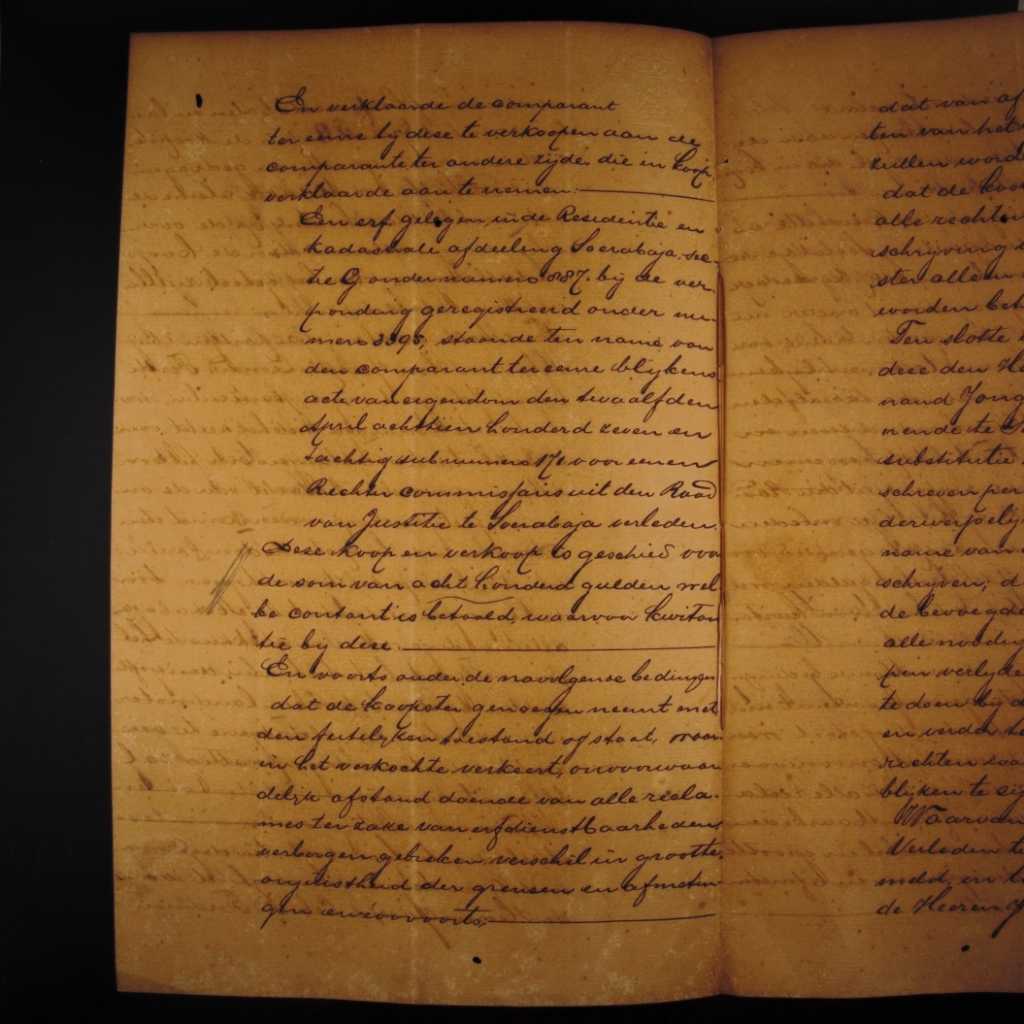 En verklaarde de comparant
ter eenre bij deze te verkoopen aan de
comparante ter andere zijde die in koop
verklaarde aan te nemen.
Een erf gelegen in de Residentie en
kadastrale afdeeling Soerabaja, sec-
tie G. onder nummero 887. bij de ver-
ponding geregistreerd onder nu-
mero 3395, staande ten name van
den comparant ter eenre blijkens
acte van eigendom den twaalfden
April achttien honderd zeven en
tachtig sub numero 171 voor eenen
Rechter commissaris uit den Raad
van Justitie te Soerabaja verleden.
Deze koop en verkoop is geschied voor
de som van acht honderd gulden, wel-
ke contant is betaald, waarvoor kwitan-
tie bij deze.
En voorts onder de navolgende bedingen
dat de koopster genoegen neemt met
den feitelijken toestand of staat, waar-
in het verkochte verkeert, onvoorwaar-
delijk afstand doende van alle recla-
mes ter zake van erfdienstbaarheden,
verborgen gebreken, verschil in grootte,
onjuistheid der grenzen en afmetin-
gen enzoovoorts.
dat van af
ten van het
zullen word
dat de koo
alle rechten
schrijving
ster alleen
worden bet
Ten slotte
deze den He
nand Jong
nende te S
substitutie
schreven per
derwerpelij
name van
schrijven; d
de bevoegde
alle noodig
pen verlyde
te doen bij d
en verder te
rechten
blijken te zij
Waarvan
Verleden te
meld, en t
de Heeren